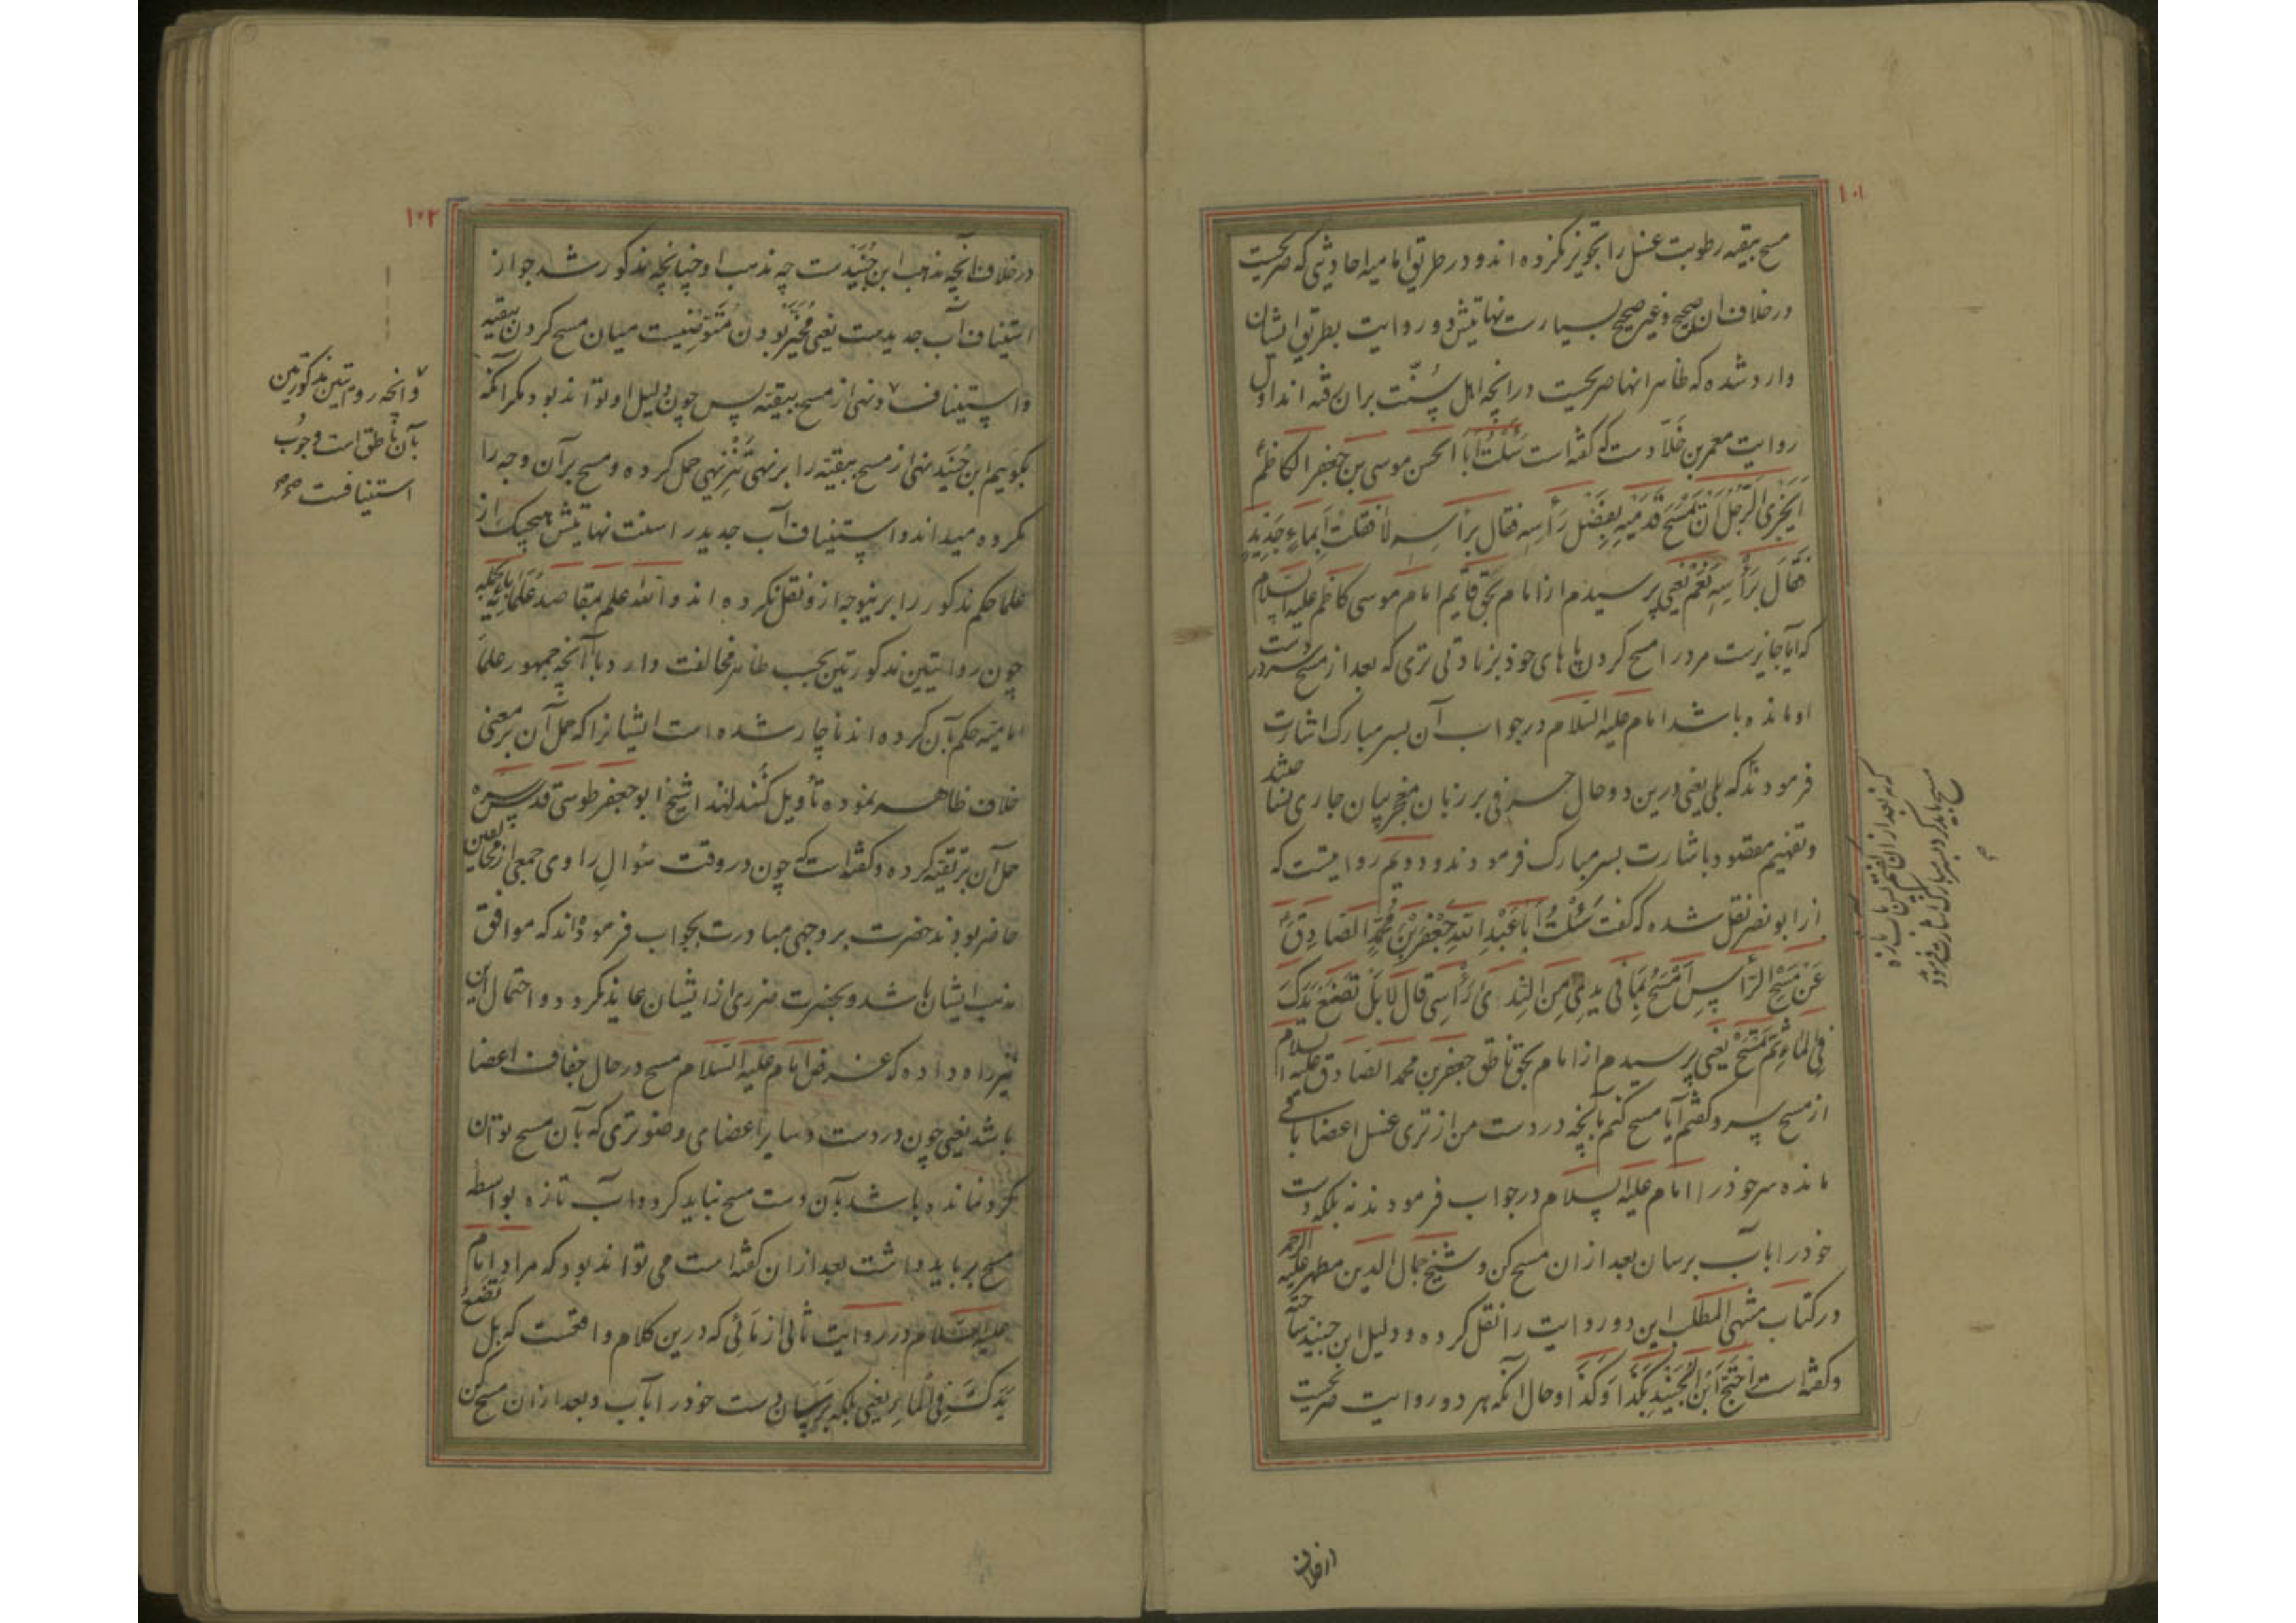 ۱۰۱
مسح ببقیه رطوبت غسل را تجویز نکرده اند و در طریق امامیه احادیثی که صریحست
در خلاف ان صحیح و غیر صحیح بسیارست نهایتش دو روایت بطریق ایشان
وارد شده که ظاهر انها صریحست در انچه اهل سنت بران رفته اند اول
روایت معمر بن خلاد ست که گفته است سَئَلْتُ اَبا الحسن موسی بن جعفر الکاظم
اَیُجْزِی الرَّجُلَ اَنْ یَمْسَحَ قَدَمَیْهِ بِفَضْلِ رَأسِهِ فقال برأسه لا فَقُلْتُ اَبِماءٍ جَدِیدٍ
فَقالَ بِرَأسِهِ نَعَمْ یعنی پرسیدم از امام بحق قایم امام موسی کاظم علیه السلام
که ایا جایزست مرد را مسح کردن پاهای خود بزیادتی تری که بعد از مسح سر در دست
او مانده باشد امام علیه السلام در جواب آن بسر مبارک اشارت
فرمودند که بلی یعنی درین دو حال حرفی بر زبان معجز بیان جاری نساختند
و تفهیم مقصود باشارت بسر مبارک فرمودند و دویم روایتیست که
از ابو بصیر نقل شده که گفت سَئَلْتُ اَبا عَبْدِ اللهِ جَعْفَرِ بْنِ مُحَمَّدٍ الصّادِقَ
عَنْ مَسْحِ الرَّأسِ اَمْسَحُ بِما فی یدی مِنَ النَّدی رَأسی قالَ لا بَلْ تَضَعُ یَدَکَ
فِی الْماءِ ثُمَّ تَمْسَحُ یعنی پرسیدم از امام بحق ناطق جعفر بن محمد الصادق علیه السلام
از مسح سر و گفتم آیا مسح کنم بآنچه در دست من از تری غسل اعضا باقی
مانده سر خود را امام علیه السلام در جواب فرمودند نه بلکه دست
خود را باب برسان بعد ازان مسح کن و شیخ جمال الدین مطهر علیه الرحمه
در کتاب منتهی المطلب این دو روایت را نقل کرده و دلیل ابن جنید ساخته
و گفته است اِحْتَجَّ ابْنُ الْجُنَیْدِ بِکَذا وَکَذا و حال انکه هر دو روایت صریحست
مسح باید کرد بسر مبارک اشارت فرمود
در خلاف
۱۰۲
در خلاف آنچه مذهب ابن جُنَیْدست چه مذهب او چنانچه مذکور شد جواز
استیناف آب جدیدست یعنی مُخَیَّر بودن مُتَوَضِّیست میان مسح کردن ببقیه
و استیناف و نهی از مسح ببقیه پس چون دلیل او تواند بود مگر آنکه
بگوییم ابن جُنَید نهی از مسح ببقیه را بر نهی تَنْزِیهی حمل کرده و مسح بر آن وجه را
مکروه میداند و استیناف آب جدید را سنت نهایتش هیچیک از
علما حکم مذکور را برینوجه ازو نقل نکرده اند والله اعلم بمقاصد علمائه
چون روایتین مذکورتین بحسب ظاهر مخالفت دارد با آنچه جمهور علماء
امامیه حکم بآن کرده اند ناچار شده است ایشانرا که حمل آن بر معنی
خلاف ظاهر نموده تأویل کُنند لهذا شیخ ابو جعفر طوسی قدس سره
حمل آن بر تقیه کرده و گفته است که چون در وقت سُوالِ راوی جمعی از مخالفین
حاضر بودند حضرت بر وجهی مبادرت بجواب فرموده‌اند که موافق
مذهب ایشان باشد و بحضرت ضرری از ایشان عاید نکردد و احتمال این
نیز راه داده که غرض امام علیه السلام مسح در حال جفاف اعضا
باشد یعنی چون در دست و سایر اعضای وضو تری که بآن مسح توان
کرد نمانده باشد بآن دست مسح نباید کرد و آب تازه بواسطه
مسح بر باید داشت بعد ازان گفته است می تواند بود که مراد امام
علیه السلام در روایت ثانی از مائی که درین کلام واقعست که بل تَضَعُ
یَدَکَ فِی الْماءِ یعنی بلکه برسان دست خود را بآب و بعد ازان مسح کن
و انچه روایتین مذکورتین
بآن ناطق است وجوب
استینافست صح